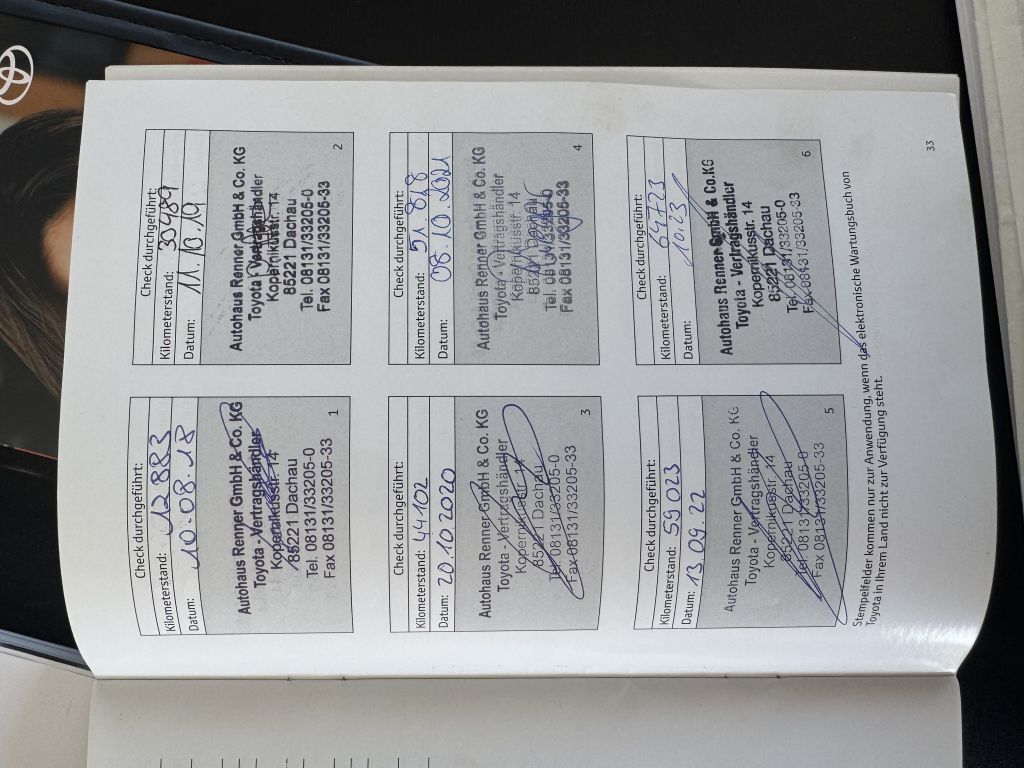 Check durchgeführt:
Kilometerstand: 12883
Datum: 10.08.18
Autohaus Renner GmbH & Co. KG
Toyota - Vertragshändler
Kopernikusstr. 14
85221 Dachau
Tel. 08131/33205-0
Fax 08131/33205-33
1
Check durchgeführt:
Kilometerstand: 30489
Datum: 11.10.19
Autohaus Renner GmbH & Co. KG
Toyota - Vertragshändler
Kopernikusstr. 14
85221 Dachau
Tel. 08131/33205-0
Fax 08131/33205-33
2
Check durchgeführt:
Kilometerstand: 44102
Datum: 20.10.2020
Autohaus Renner GmbH & Co. KG
Toyota - Vertragshändler
Kopernikusstr. 14
85221 Dachau
Tel. 08131/33205-0
Fax 08131/33205-33
3
Check durchgeführt:
Kilometerstand: 51 828
Datum: 08.10.2021
Autohaus Renner GmbH & Co. KG
Toyota - Vertragshändler
Kopernikusstr. 14
85221 Dachau
Tel. 08131/33205-0
Fax 08131/33205-33
4
Check durchgeführt:
Kilometerstand: 59 023
Datum: 13.09.22
Autohaus Renner GmbH & Co. KG
Toyota - Vertragshändler
Kopernikusstr. 14
85221 Dachau
Tel. 08131/33205-0
Fax 08131/33205-33
5
Check durchgeführt:
Kilometerstand: 64723
Datum: 10.23
Autohaus Renner GmbH & Co. KG
Toyota - Vertragshändler
Kopernikusstr. 14
85221 Dachau
Tel. 08131/33205-0
Fax 08131/33205-33
6
Stempelfelder kommen nur zur Anwendung, wenn das elektronische Wartungsbuch von
Toyota in Ihrem Land nicht zur Verfügung steht.
33